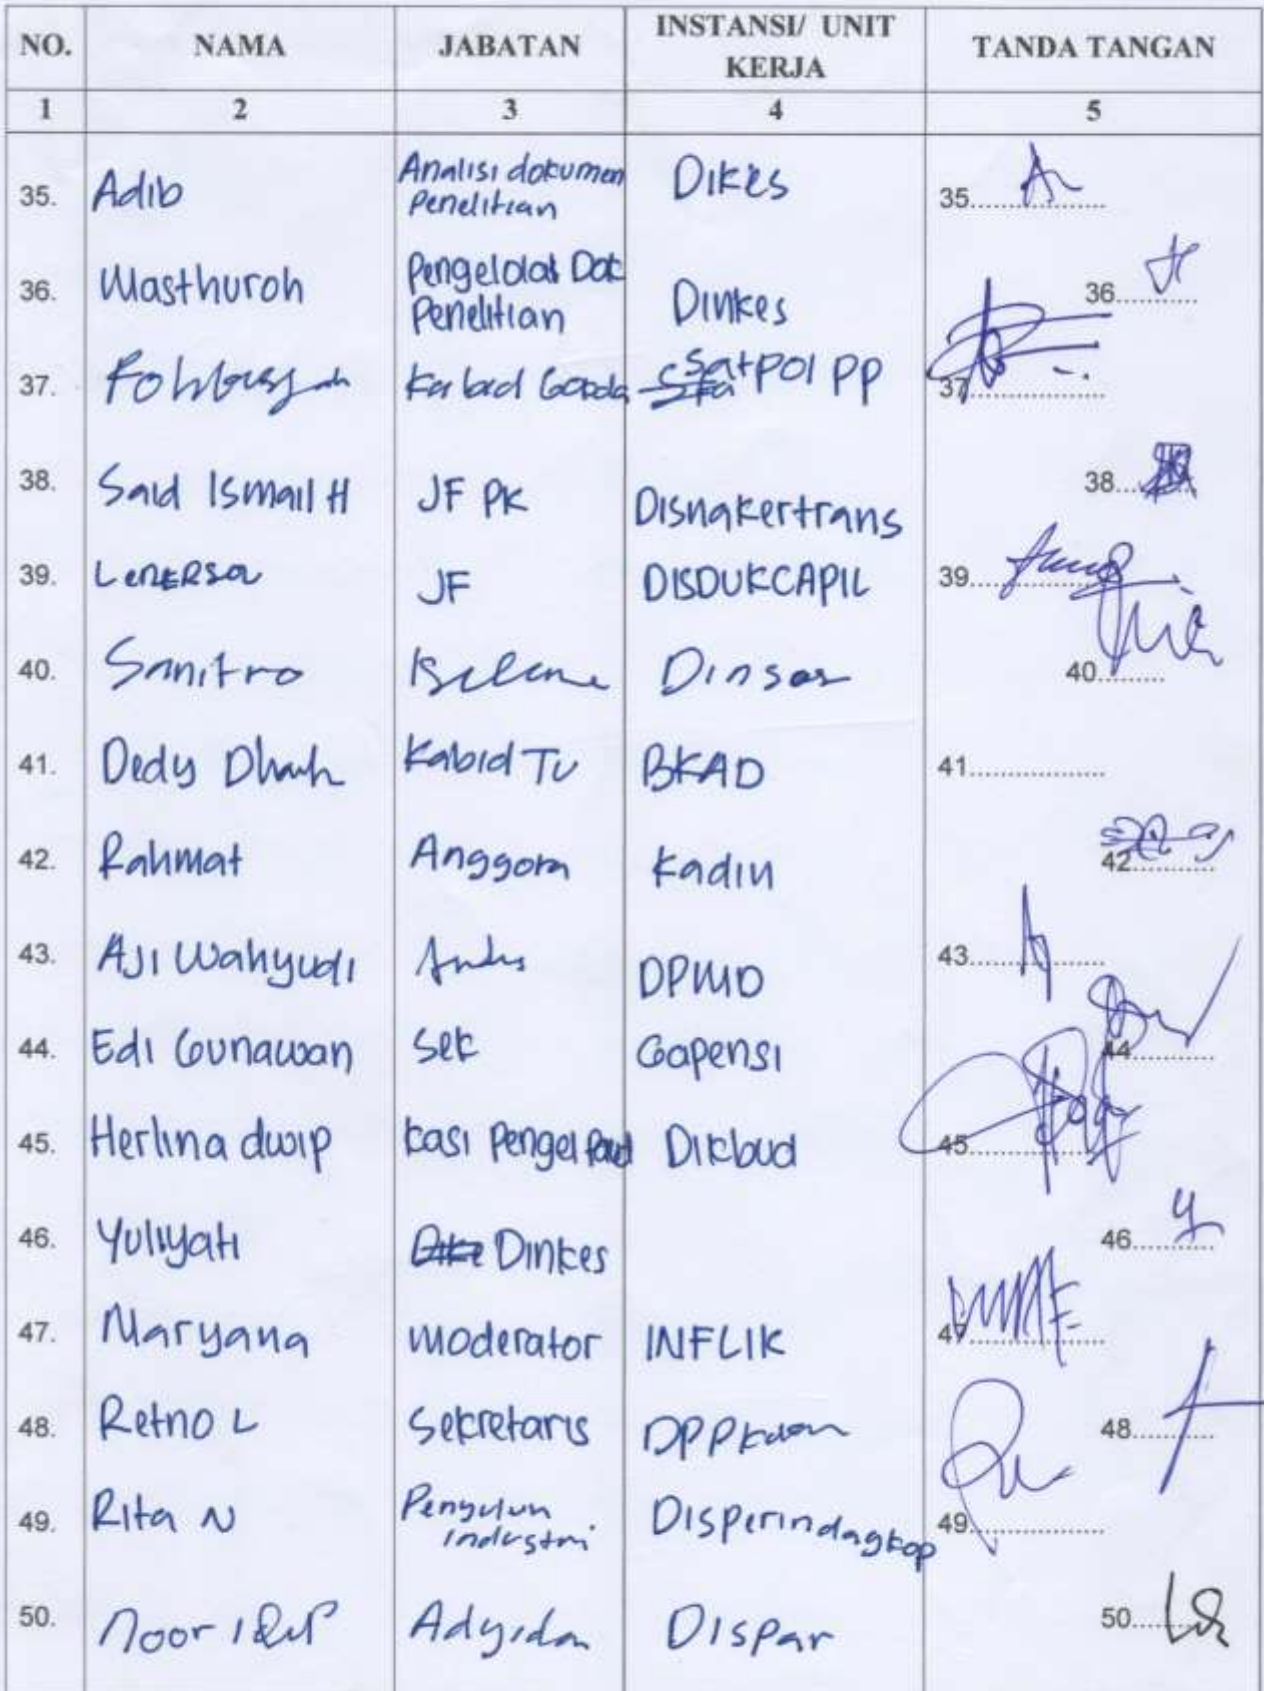 NO. NAMA JABATAN INSTANSI/ UNIT KERJA TANDA TANGAN
1 2 3 4 5
35. Adib Analisi dokumen Penelitian Dikes 35
36. Masthuroh Pengelola Dok Penelitian Dinkes 36
37. Kabid Satpol PP 37
38. Said Ismail H JF PK Disnakertrans 38
39. JF DISDUKCAPIL 39
40. Dinsos 40
41. Dedy Kabid TU BKAD 41
42. Rahmat Anggota Kadin 42
43. Aji Wahyudi DPMD 43
44. Edi Gunawan Sek Gapensi 44
45. Herlina dwip Kasi Pengel Paud Dikbud 45
46. Yuliyati Dinkes 46
47. Maryana Moderator INFLIK 47
48. Retno L Sekretaris 48
49. Rita N Penyuluh industri Disperindagkop 49
50. Noor Dispar 50